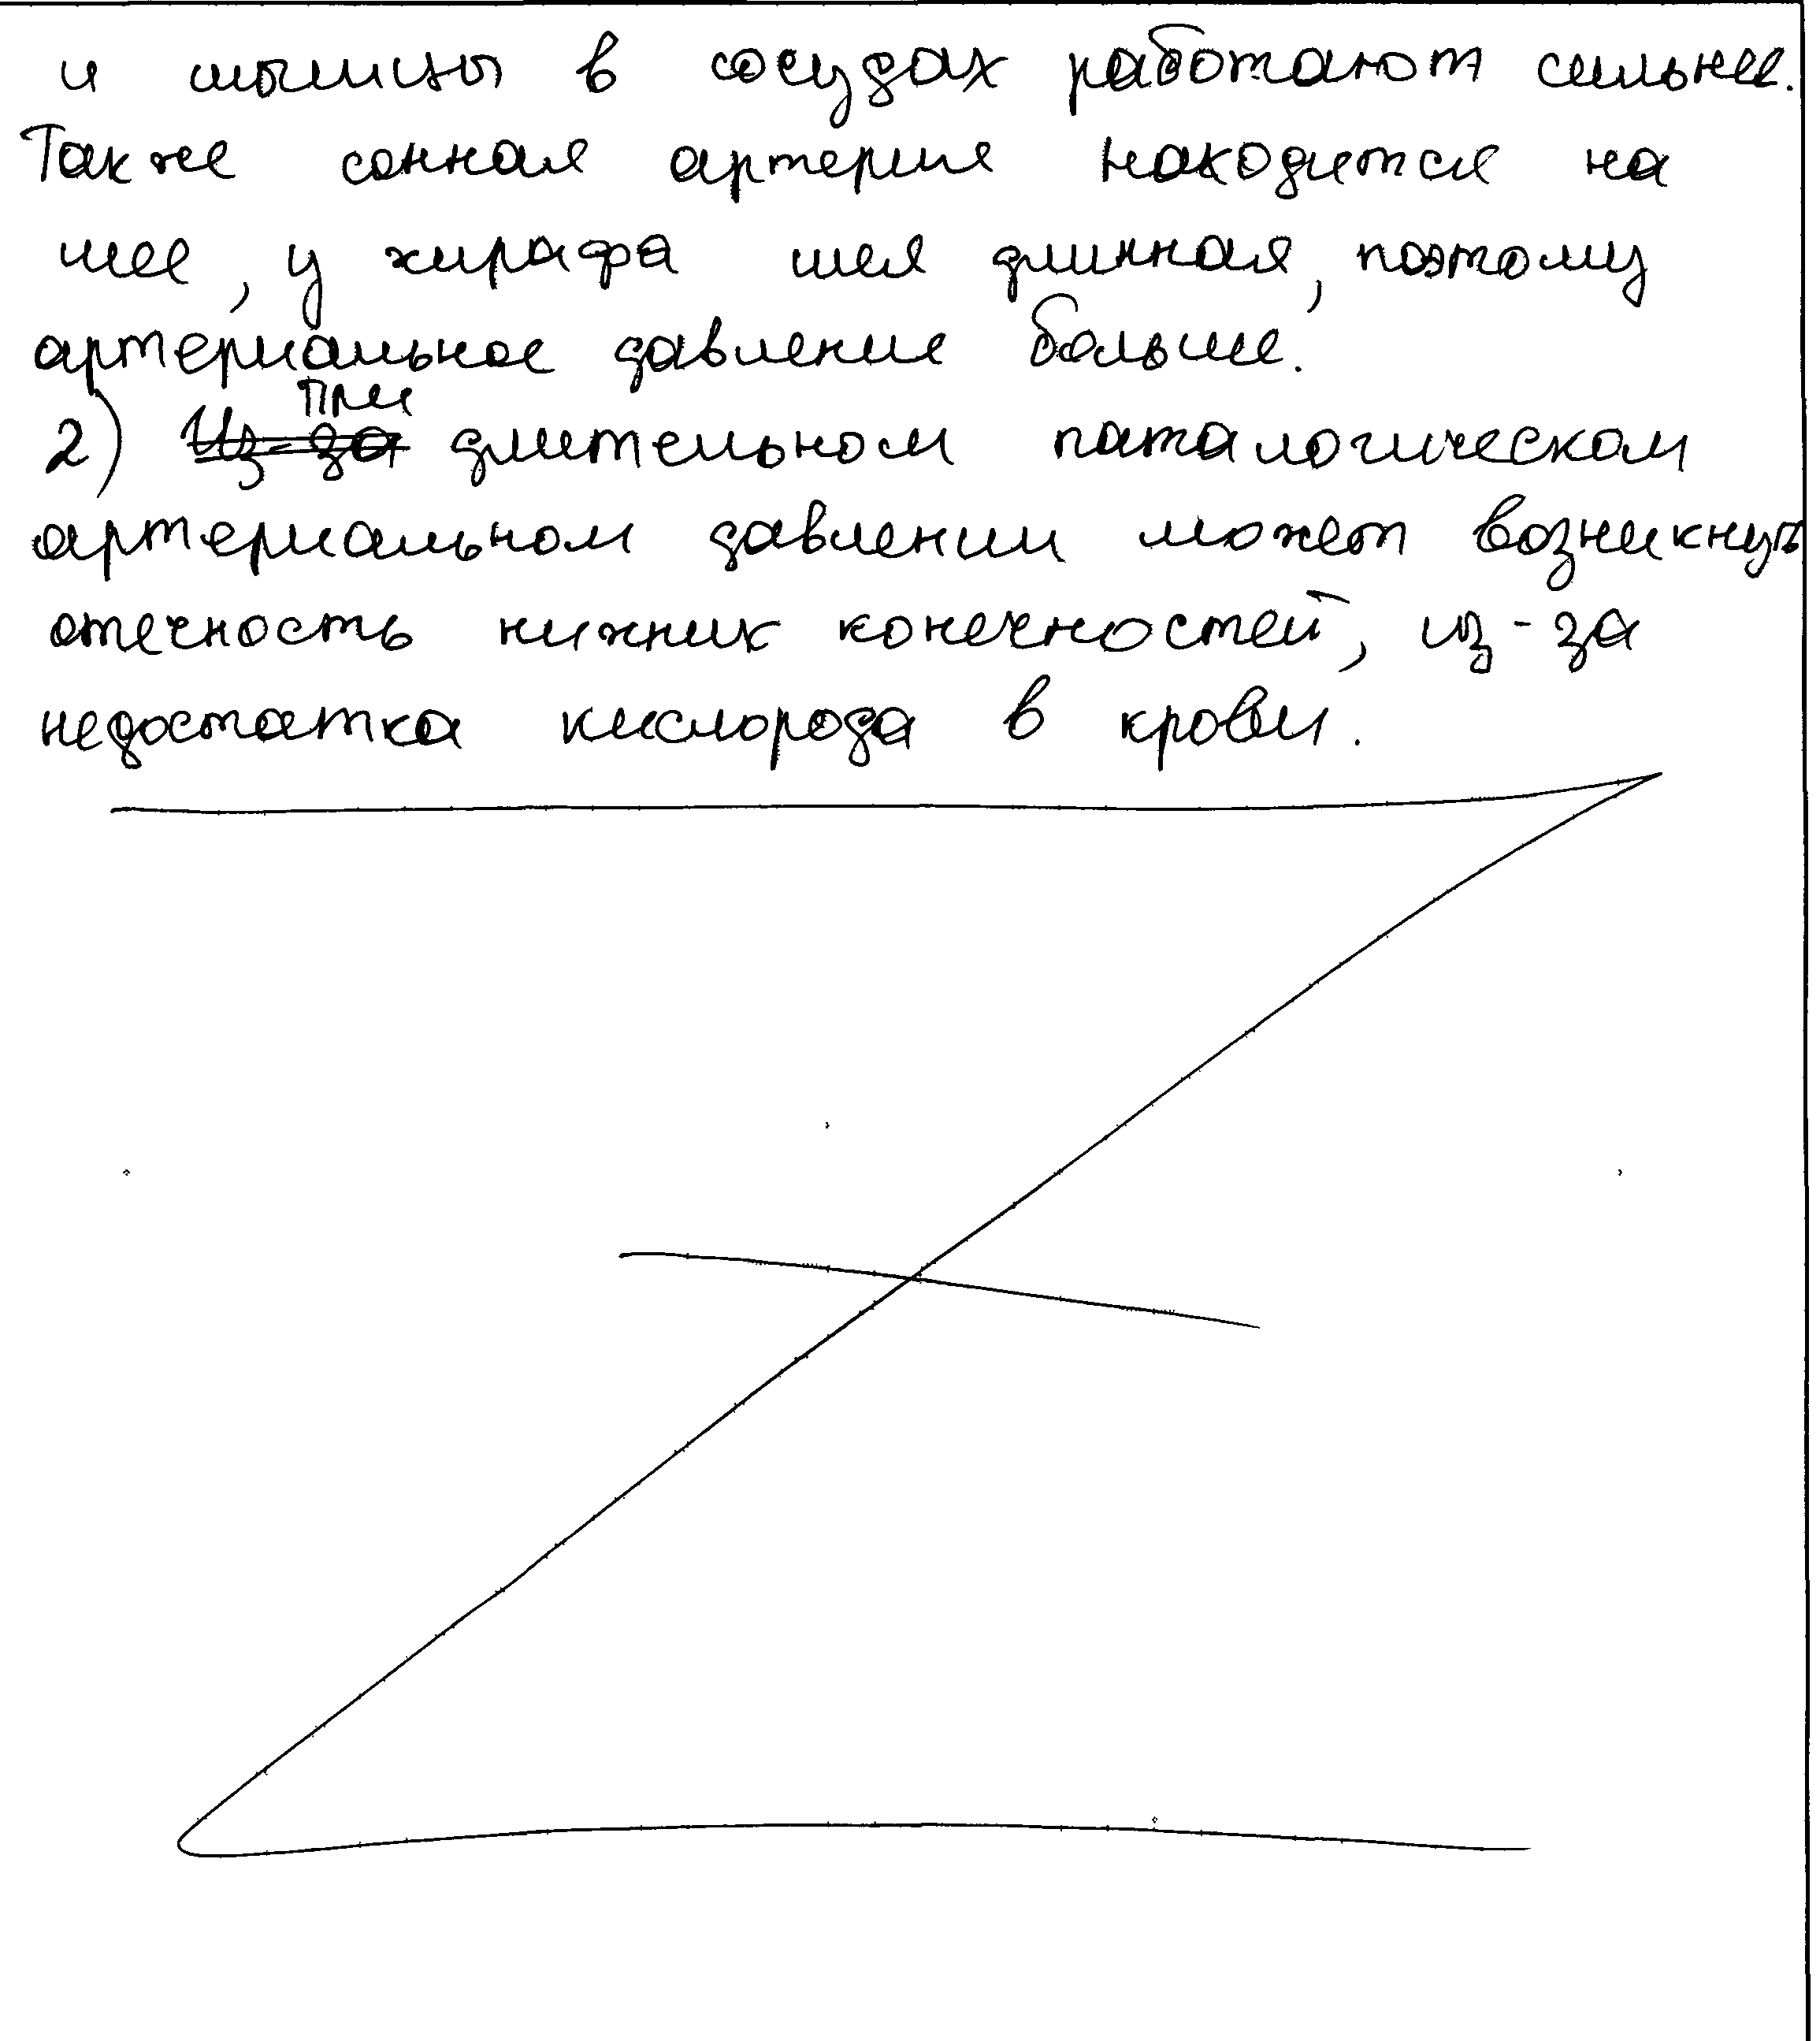 и мышцы в сосудах работают сильнее.
Также сонная артерия находится на
шее, у жирафа шея длинная, поэтому
артериальное давление больше.
при
2) Из-за длительном паталогическом
артериальном давлении может возникнуть
отечность нижних конечностей, из-за
недостатка кислорода в крови.